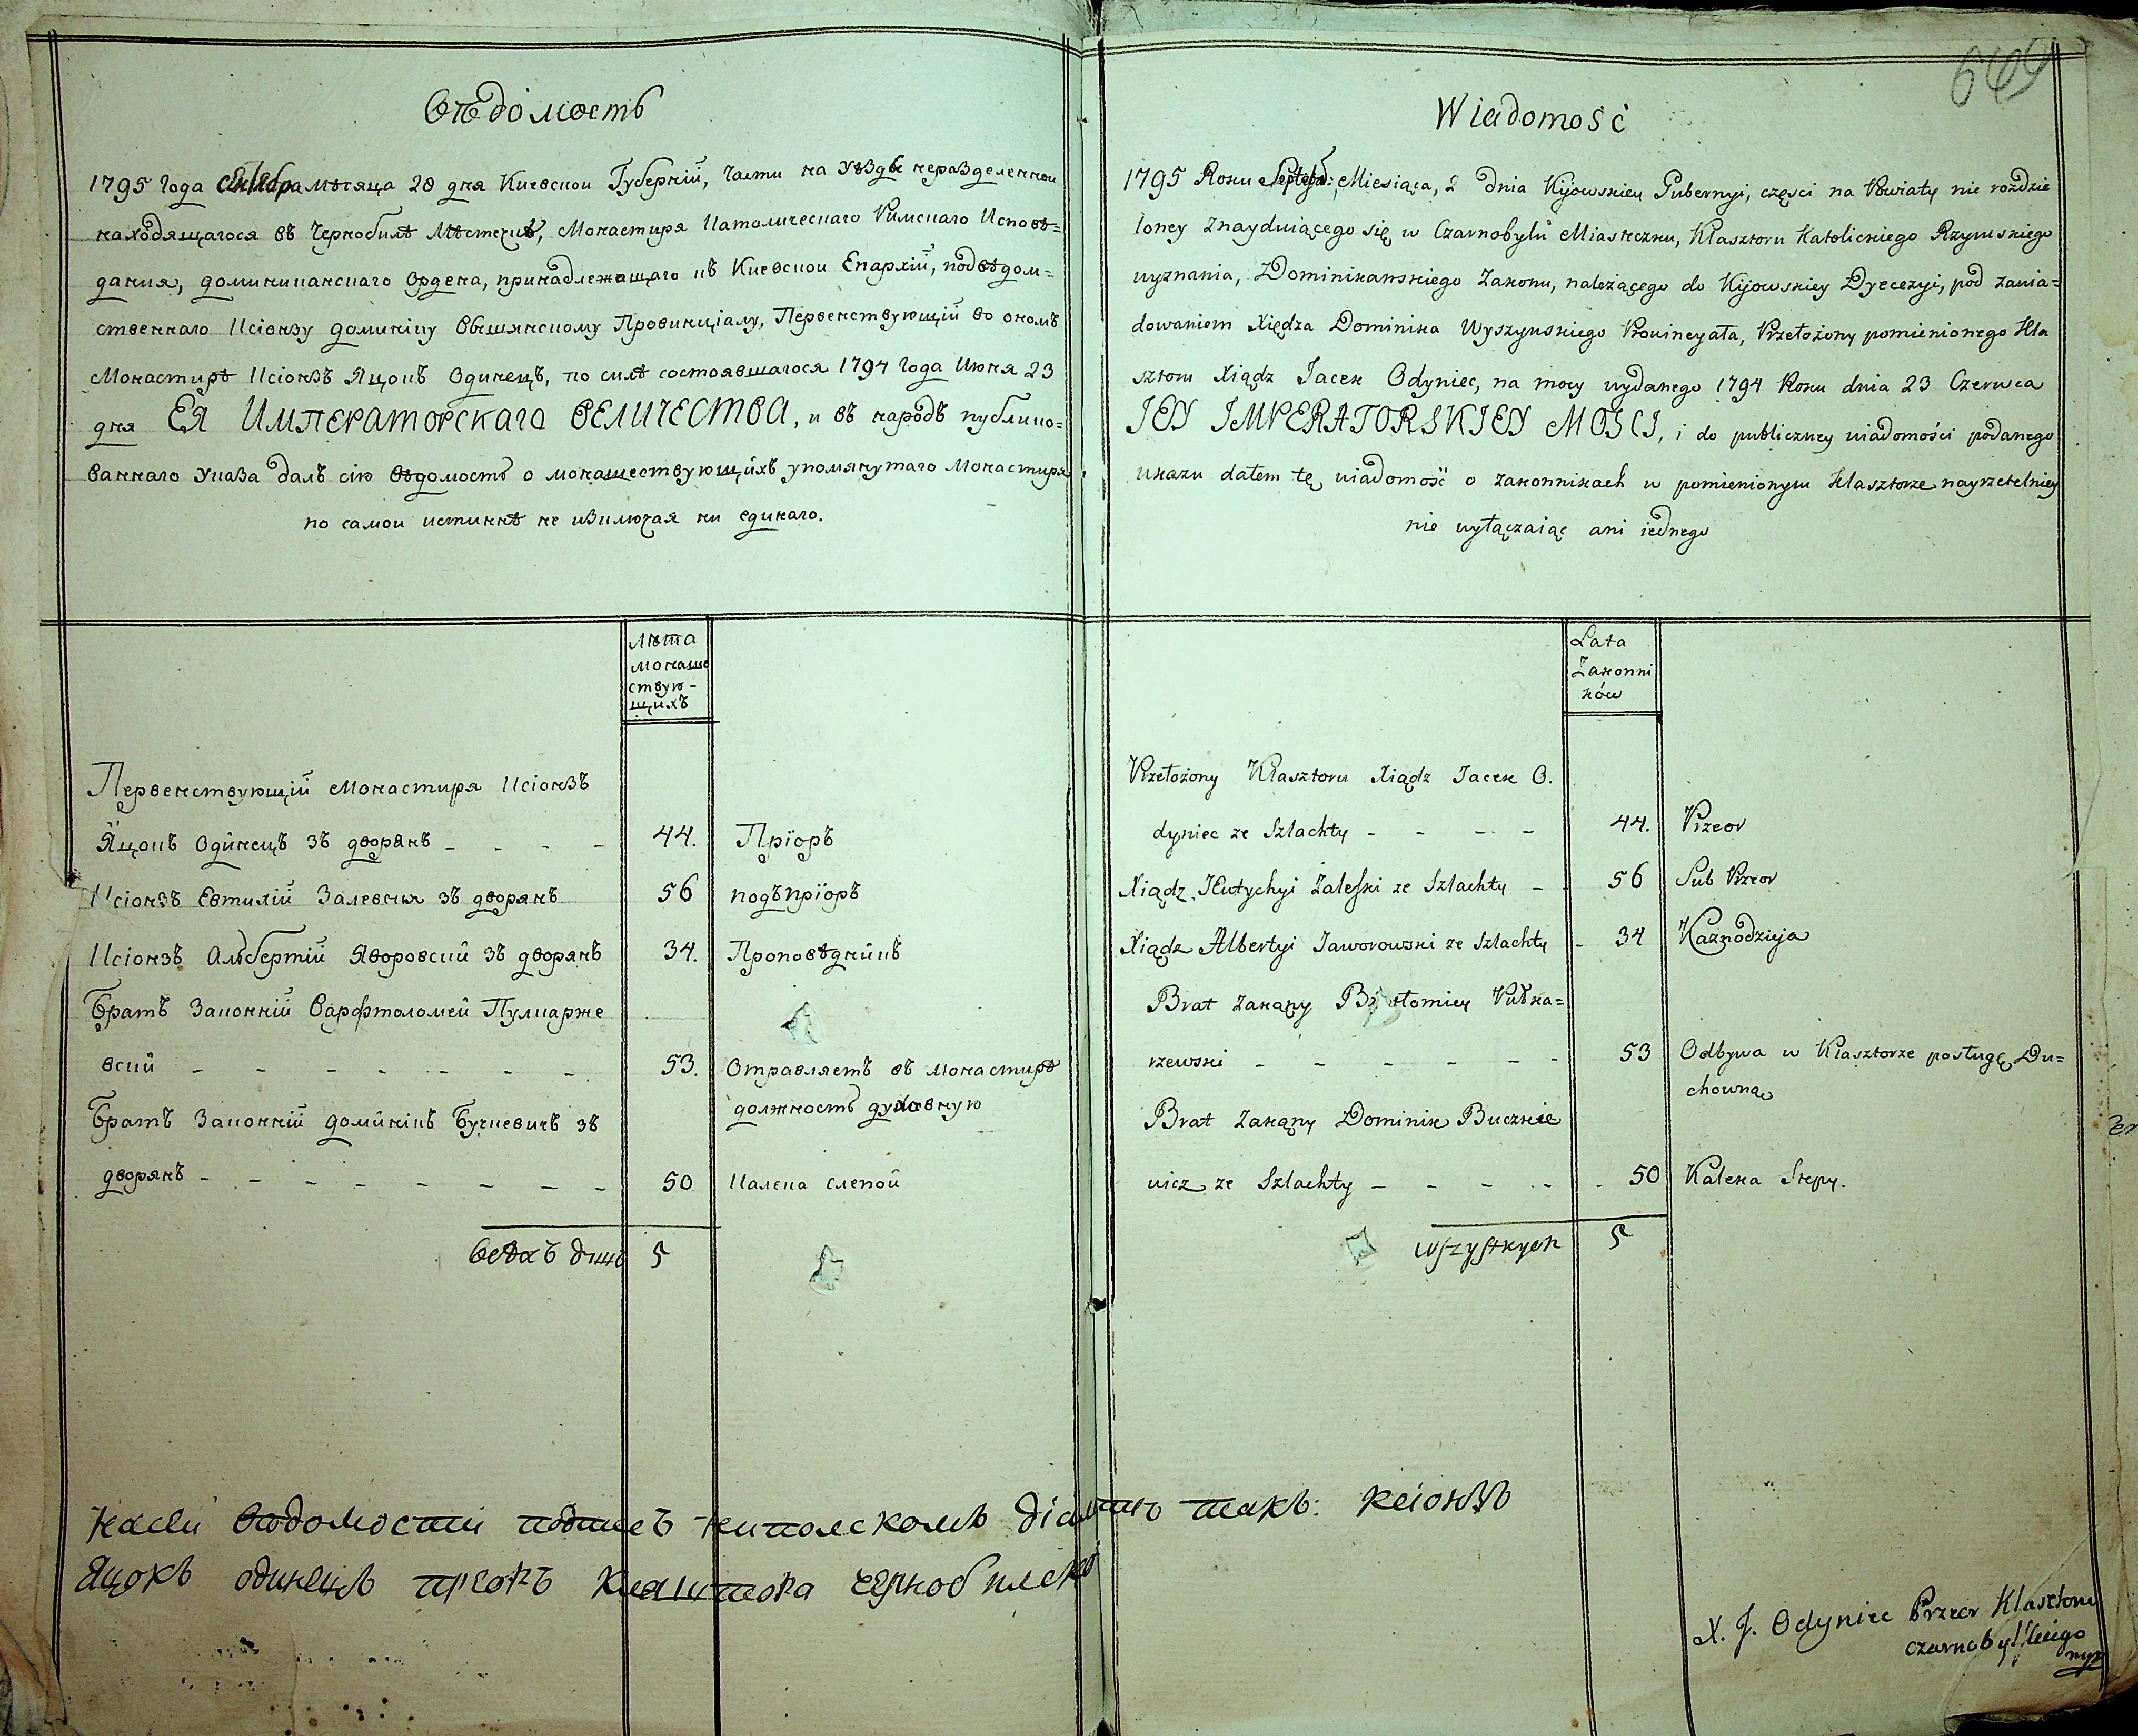 Вѣдомость
1795 года месяца 28 дня Киевскои Губерніи, части на уѣзды неразделеннои
находящагося въ Чернобилѣ Мѣстечкѣ, Монастиря Католическаго Римскаго Исповѣ=
дания, доминиканскаго Ордена, принадлежащаго къ Киевскои Епархіи, подвѣдом=
ственнаго Ксіонзу доминіку Вышинскому Провинціалу, Первенствующій во ономъ
Монастирѣ Ксіонзъ Яцокъ Одинецъ, по силѣ состоявшагося 1794 года Июня 23
дня ЕЯ ИМПЕРАТОРСКАГО ВЕЛИЧЕСТВА, и въ народъ публико=
ваннаго указа далъ сію вѣдомость о монашествующихъ упомянутаго Монастиря
по самои истиннѣ не изключая ни единаго.
Лѣта
монаше
ствую-
щихъ
Первенствующій Монастиря Ксіонзъ
Яцокъ Одинецъ зъ дворянъ - - - - 44. Пріоръ
Ксіонзъ Евтихій Залевскія зъ дворянъ 56 подъпріоръ
Ксіонзъ Альбертій Яворовскій зъ дворянъ 34. Проповѣдникъ
Братъ Законній Варфтоломей Пулкарже
вскій - - - - - - - 53. Отравляетъ въ монастирѣ
должность духовную
Братъ Законній доминікъ Бучкевичъ зъ
дворянъ - - - - - - - - 50 Калека слепой
Всехъ душъ 5
Wiadomość
1795 Roku Septebr: Miesiąca, 2 dnia Kijowskiey Gubernyi, częsci na Powiaty nie rozdzie
loney znayduiącego się w Czarnobylu Miasteczku, Klasztoru Katolickiego Rzymskiego
wyznania, Dominikanskiego Zakonu, należącego do Kijowskiey Dyecezyi, pod zawia=
dowaniem Xiędza Dominika Wyszynskiego Prouincyała, Przełożony pomienionego Kla
sztoru Xiądz Jacek Odyniec, na mocy wydanego 1794 Roku dnia 23 Czerwca
JEY IMPERATORSKIEY MOSCI, i do publiczney wiadomości podanego
ukazu dałem tę wiadomość o zakonnikach w pomienionym Klasztorze nayrzetelniey
nie wyłączaiąc ani iednego
Lata
Zakonni
ków
Przełożony Klasztoru Xiądz Jacek O.
dyniec ze Szlachty - - - - 44. Przeor
Xiądz Eutychyi Zaleski ze Szlachty - 56 Sub Przeor
Xiądz Albertyi Jaworowski ze Szlachty - 34 Kaznodzieja
Brat zakąny Pułka=
rzewski - - - - - - 53 Odbywa w Klasztorze posługę Du=
chowną
Brat zakąny Dominik Buczkie
wicz ze Szlachty - - - - - 50 Kaleka Slepy.
wszystkych 5
На сеи вѣдомости на полскомъ такъ: ксіонзъ
Яцокъ одинецъ преоръ клаштора чернобилско
X. J. Odyniec Przeor Klasztoru
czarnobylskiego